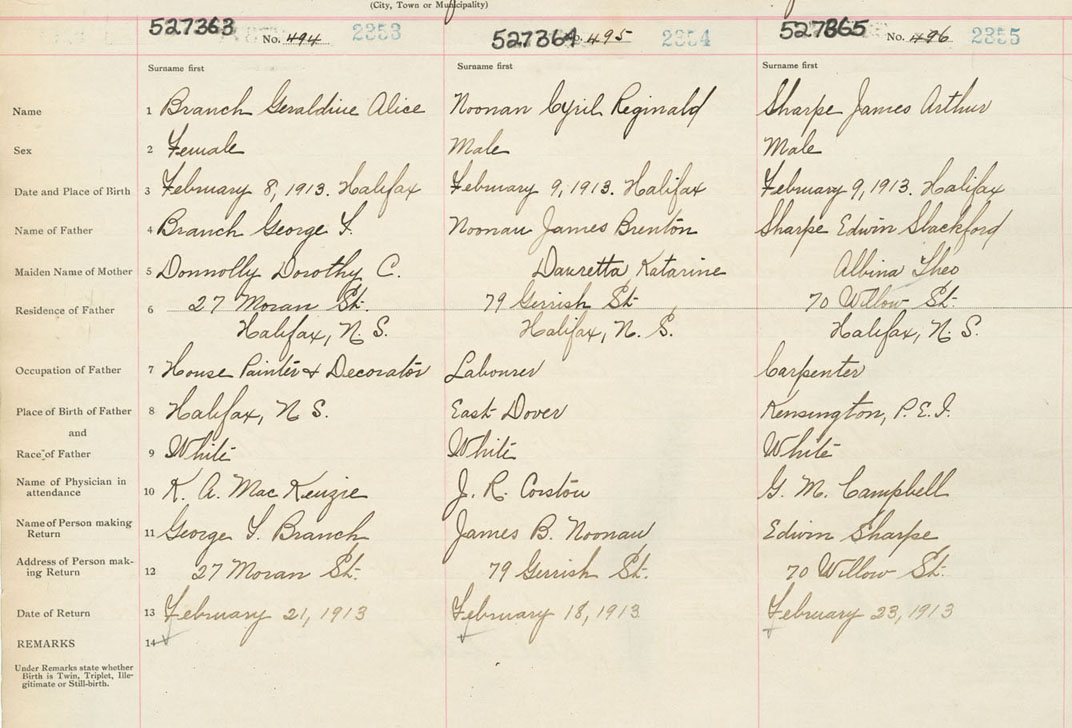 (City, Town or Municipality)
527363 No. 494 2353
527364 No. 495 2354
527365 No. 496 2355
Surname first Surname first Surname first
Name 1 Branch Geraldine Alice Noonan Cyril Reginald Sharpe James Arthur
Sex 2 Female Male Male
Date and Place of Birth 3 February 8, 1913. Halifax February 9, 1913. Halifax February 9, 1913. Halifax
Name of Father 4 Branch George Y. Noonan James Brenton Sharpe Edwin Shackford
Maiden Name of Mother 5 Donnolly Dorothy C. Dauretta Katarine Albina Theo
Residence of Father 6 27 Moran St. 79 Gerrish St. 70 Willow St.
Halifax, N. S. Halifax, N. S. Halifax, N. S.
Occupation of Father 7 House Painter & Decorator Labourer Carpenter
Place of Birth of Father 8 Halifax, N S. East Dover Kensington, P. E. I.
and
Race of Father 9 White White White
Name of Physician in
attendance 10 K. A. Mac Kenzie J. R. Corston G. M. Campbell
Name of Person making
Return 11 George Y. Branch James B. Noonan Edwin Sharpe
Address of Person mak-
ing Return 12 27 Moran St. 79 Gerrish St. 70 Willow St.
Date of Return 13 February 21, 1913 February 18, 1913 February 23, 1913
REMARKS 14
Under Remarks state whether
Birth is Twin, Triplet, Ille-
gitimate or Still-birth.